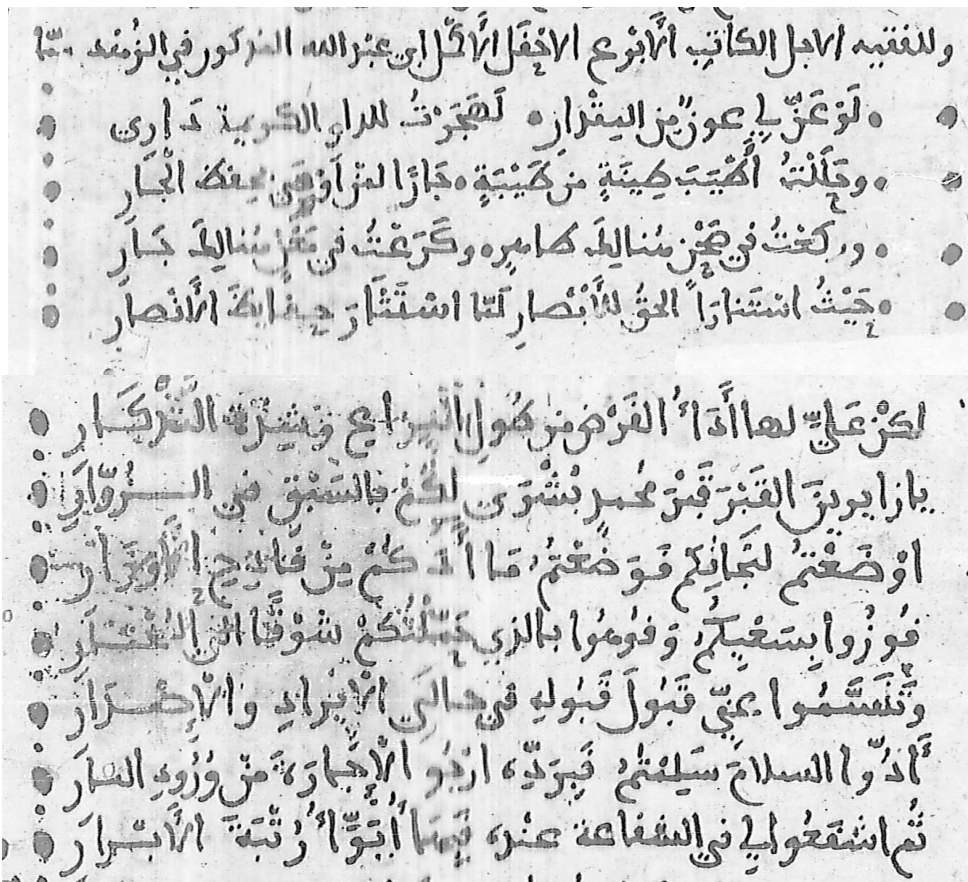 وللفقيه الاجل الكاتب الأبرع الاحفل الأكمل ابن عبد الله المذكور في الزهد
لو عن لي عون من المقدار لهجرت للدار الكريمة داري
وحللت أطيب طينة من طيبة جارا لمن أوصى بحفظ الجار
وركعت في صحن هنالك طاهر وكرعت في بحر هنالك جار
حيث استنار الحق للأبصار لما استثار حفائظ الأنصار
لكن علي لها أداء الفرض من طول
يا زايرين القبر قبر محمد بشرى لكم بالسبق في الزوار
اوضعتم لنجاتكم فوضعتم ما آدكم من فادح الأوزار
فوزوا بسعيكم وفوهوا بالذي حملتكم شوقا الى المختار
في حالي الايراد والاصدار
أدوا السلام سلمتم فبرده ارجو الإجارة من ورود النار
ثم اشفعوا لي في الشفاعة عنده رتبة الأبرار